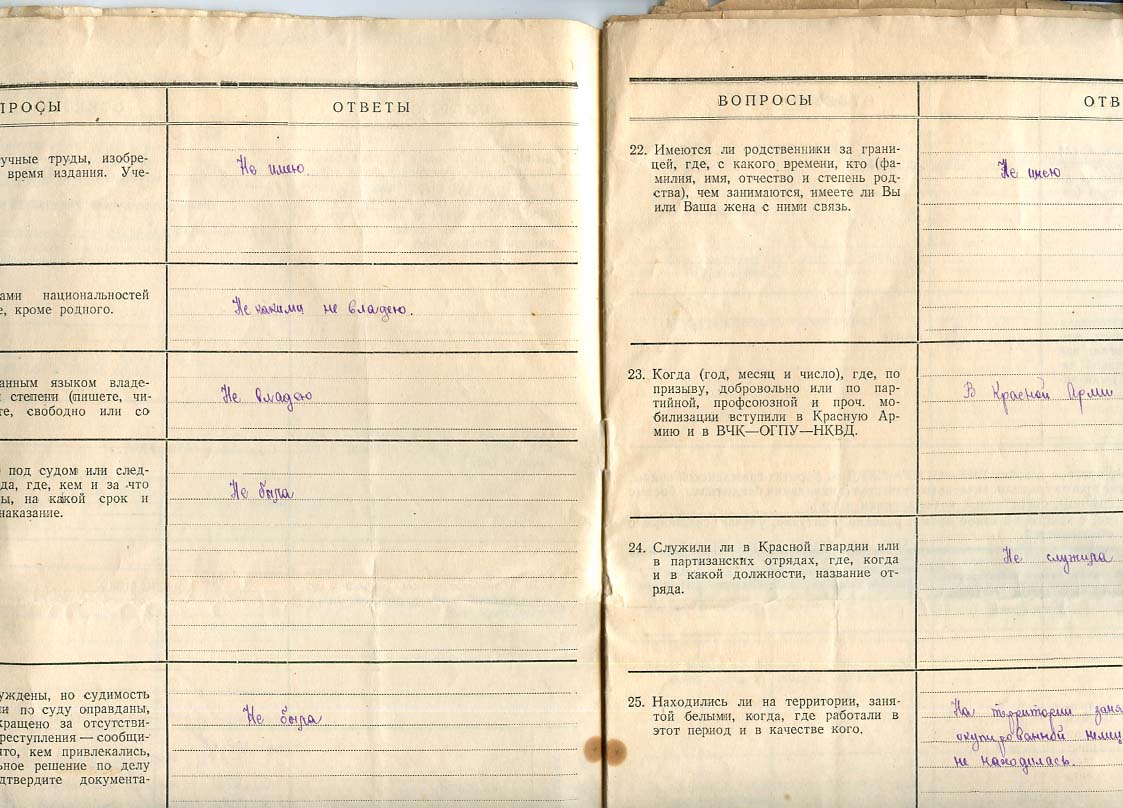 ПРОСЫ
ОТВЕТЫ
учные труды, изобре-
время издания. Уче-
Не имею.
ами национальностей
е, кроме родного.
Не какими не владею.
анным языком владе-
степени (пишете, чи-
те, свободно или со
Не владею
под судом или след-
да, где, кем и за что
ы, на какой срок и
наказание.
Не была
уждены, но судимость
и по суду оправданы,
кращено за отсутстви-
реступления — сообщи-
что, кем привлекались,
ьное решение по делу
дтвердите документа-
Не была
ВОПРОСЫ
ОТВ
22. Имеются ли родственники за грани-
цей, где, с какого времени, кто (фа-
милия, имя, отчество и степень род-
ства), чем занимаются, имеете ли Вы
или Ваша жена с ними связь.
Не имею
23. Когда (год, месяц и число), где, по
призыву, добровольно или по пар-
тийной, профсоюзной и проч. мо-
билизации вступили в Красную Ар-
мию и в ВЧК—ОГПУ—НКВД.
В Красной Арми
24. Служили ли в Красной гвардии или
в партизанских отрядах, где, когда
и в какой должности, название от-
ряда.
Не служила
25. Находились ли на территории, заня-
той белыми, когда, где работали в
этот период и в качестве кого.
На территории заня
окупированной немц
не находилась.